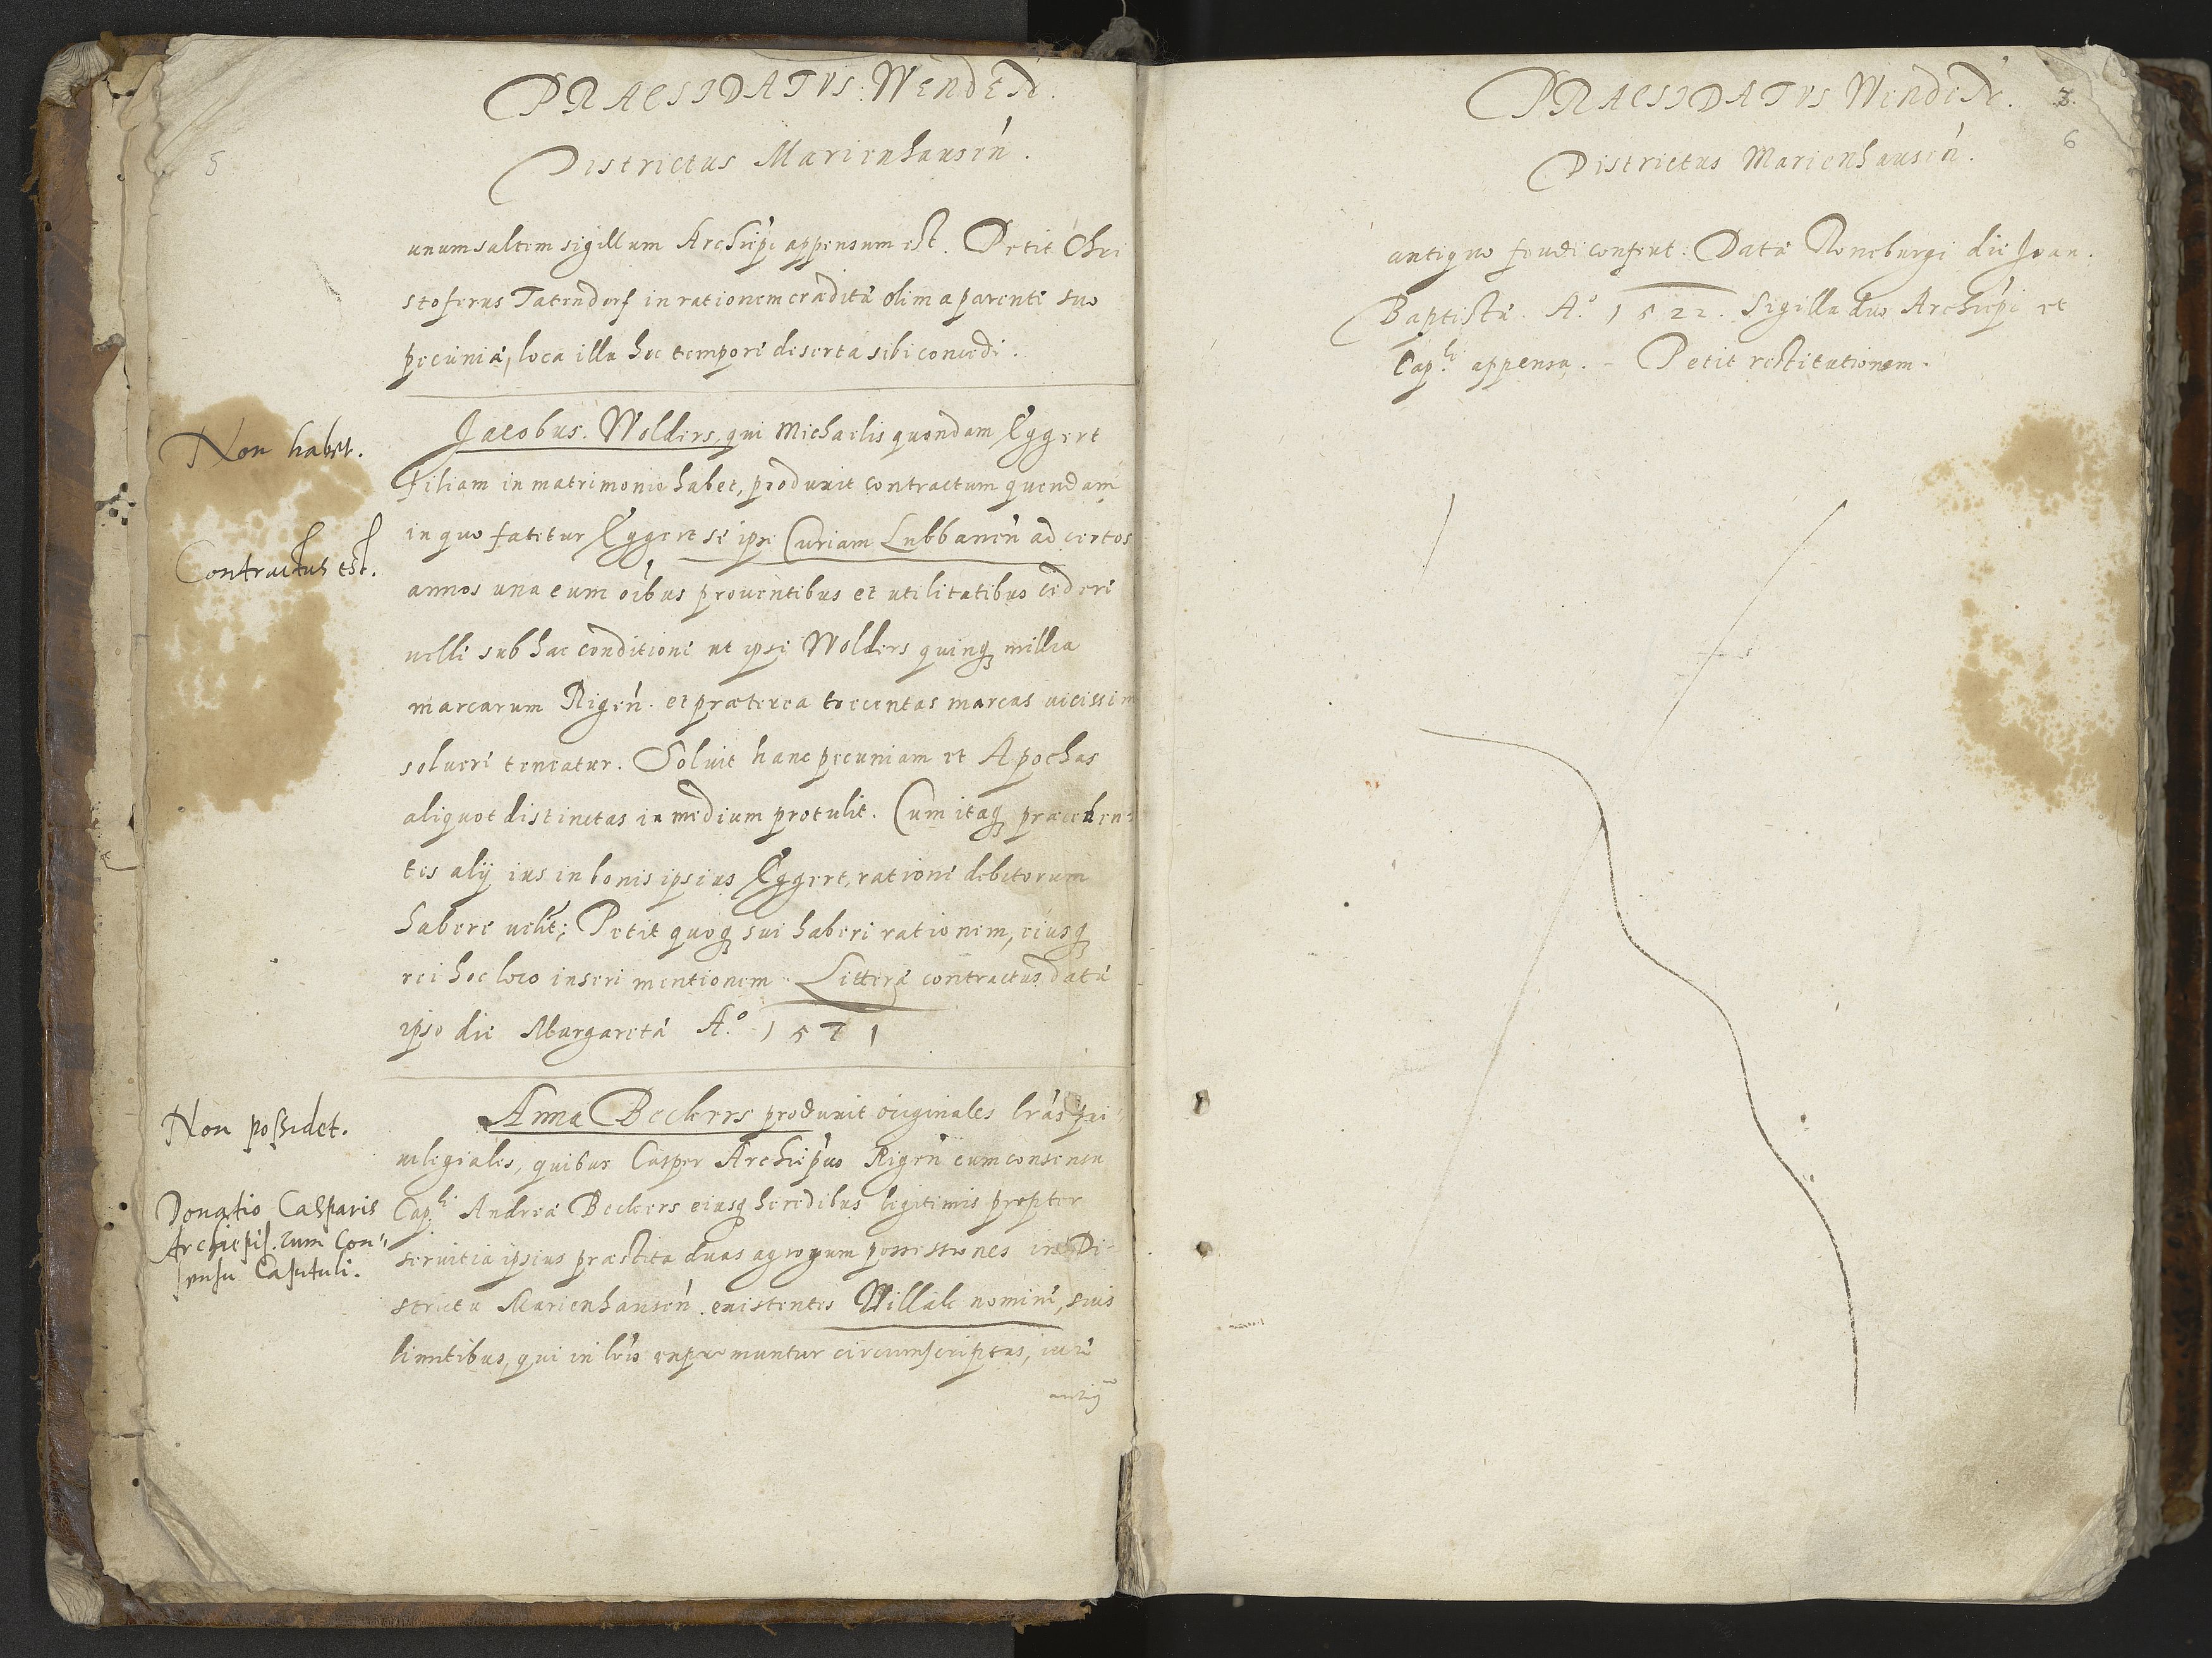 PRAESIDATVS: WENDEN.
5
Districtus Marienhausen̄.
unum saltem sigillum Archiep̄i appensum est. Petit Chri
stoferus Tatendorf in rationem creditæ olim a parente suo
pecuniæ, loca illa hoc tempore deserta sibi concedi.
Non habet.
Jacobus. Wolders, qui Michaelis quondam Eggert
Filiam in matrimonio habet, produxit contractum quendam
in quo fatetur Eggert se ipse Curiam Lubbanen̄ ad certos
Contractus est.
annos una cum oībus prouentibus et utilitatibus cedere
uelle sub hac conditione ut ipse Wolders quinq millia
marcarum Rigen̄. et præterea trecentas marcas uicissim
soluere teneatur. Soluit hanc pecuniam et Apochas
aliquot distinctas in medium protulit. Cum itaq præceden-
tes alij ius in bonis ipsius Eggert, ratione debitorum
habere uelīt; Petit quoq sui haberi rationem, eiusq
rei hoc loco inseri mentionem. Litteræ contractus datæ
ipso die Margaretæ A.º 1571
Non possidet.
Anna Beckers produxit originales lr̄as pri
uilegiales, quibus Casper Archiep̄us Rigen̄ cum consensu
Donatio Casparis
Archiepis. cum Con-
sensu Capituli.
Cap.li Andreæ Beckers eiusq heredibus legitimis propter
seruitia ipsius præstita duas agrorum possessiones in Di-
strictu Marienhausen̄. existentes Willak nomine, suis
limitibus, qui in lr̄is exprimuntur circumscriptas, iure
antiq
PRAESIDATVS WENDEN.
3.
6
Districtus Marienhausen̄.
antiquo feudi confert. Datæ Roneburgi die Joan.
Baptistæ. A.º 1522. Sigilla duo Archiep̄i et
Cap.li appensa. - Petit restitutionem.